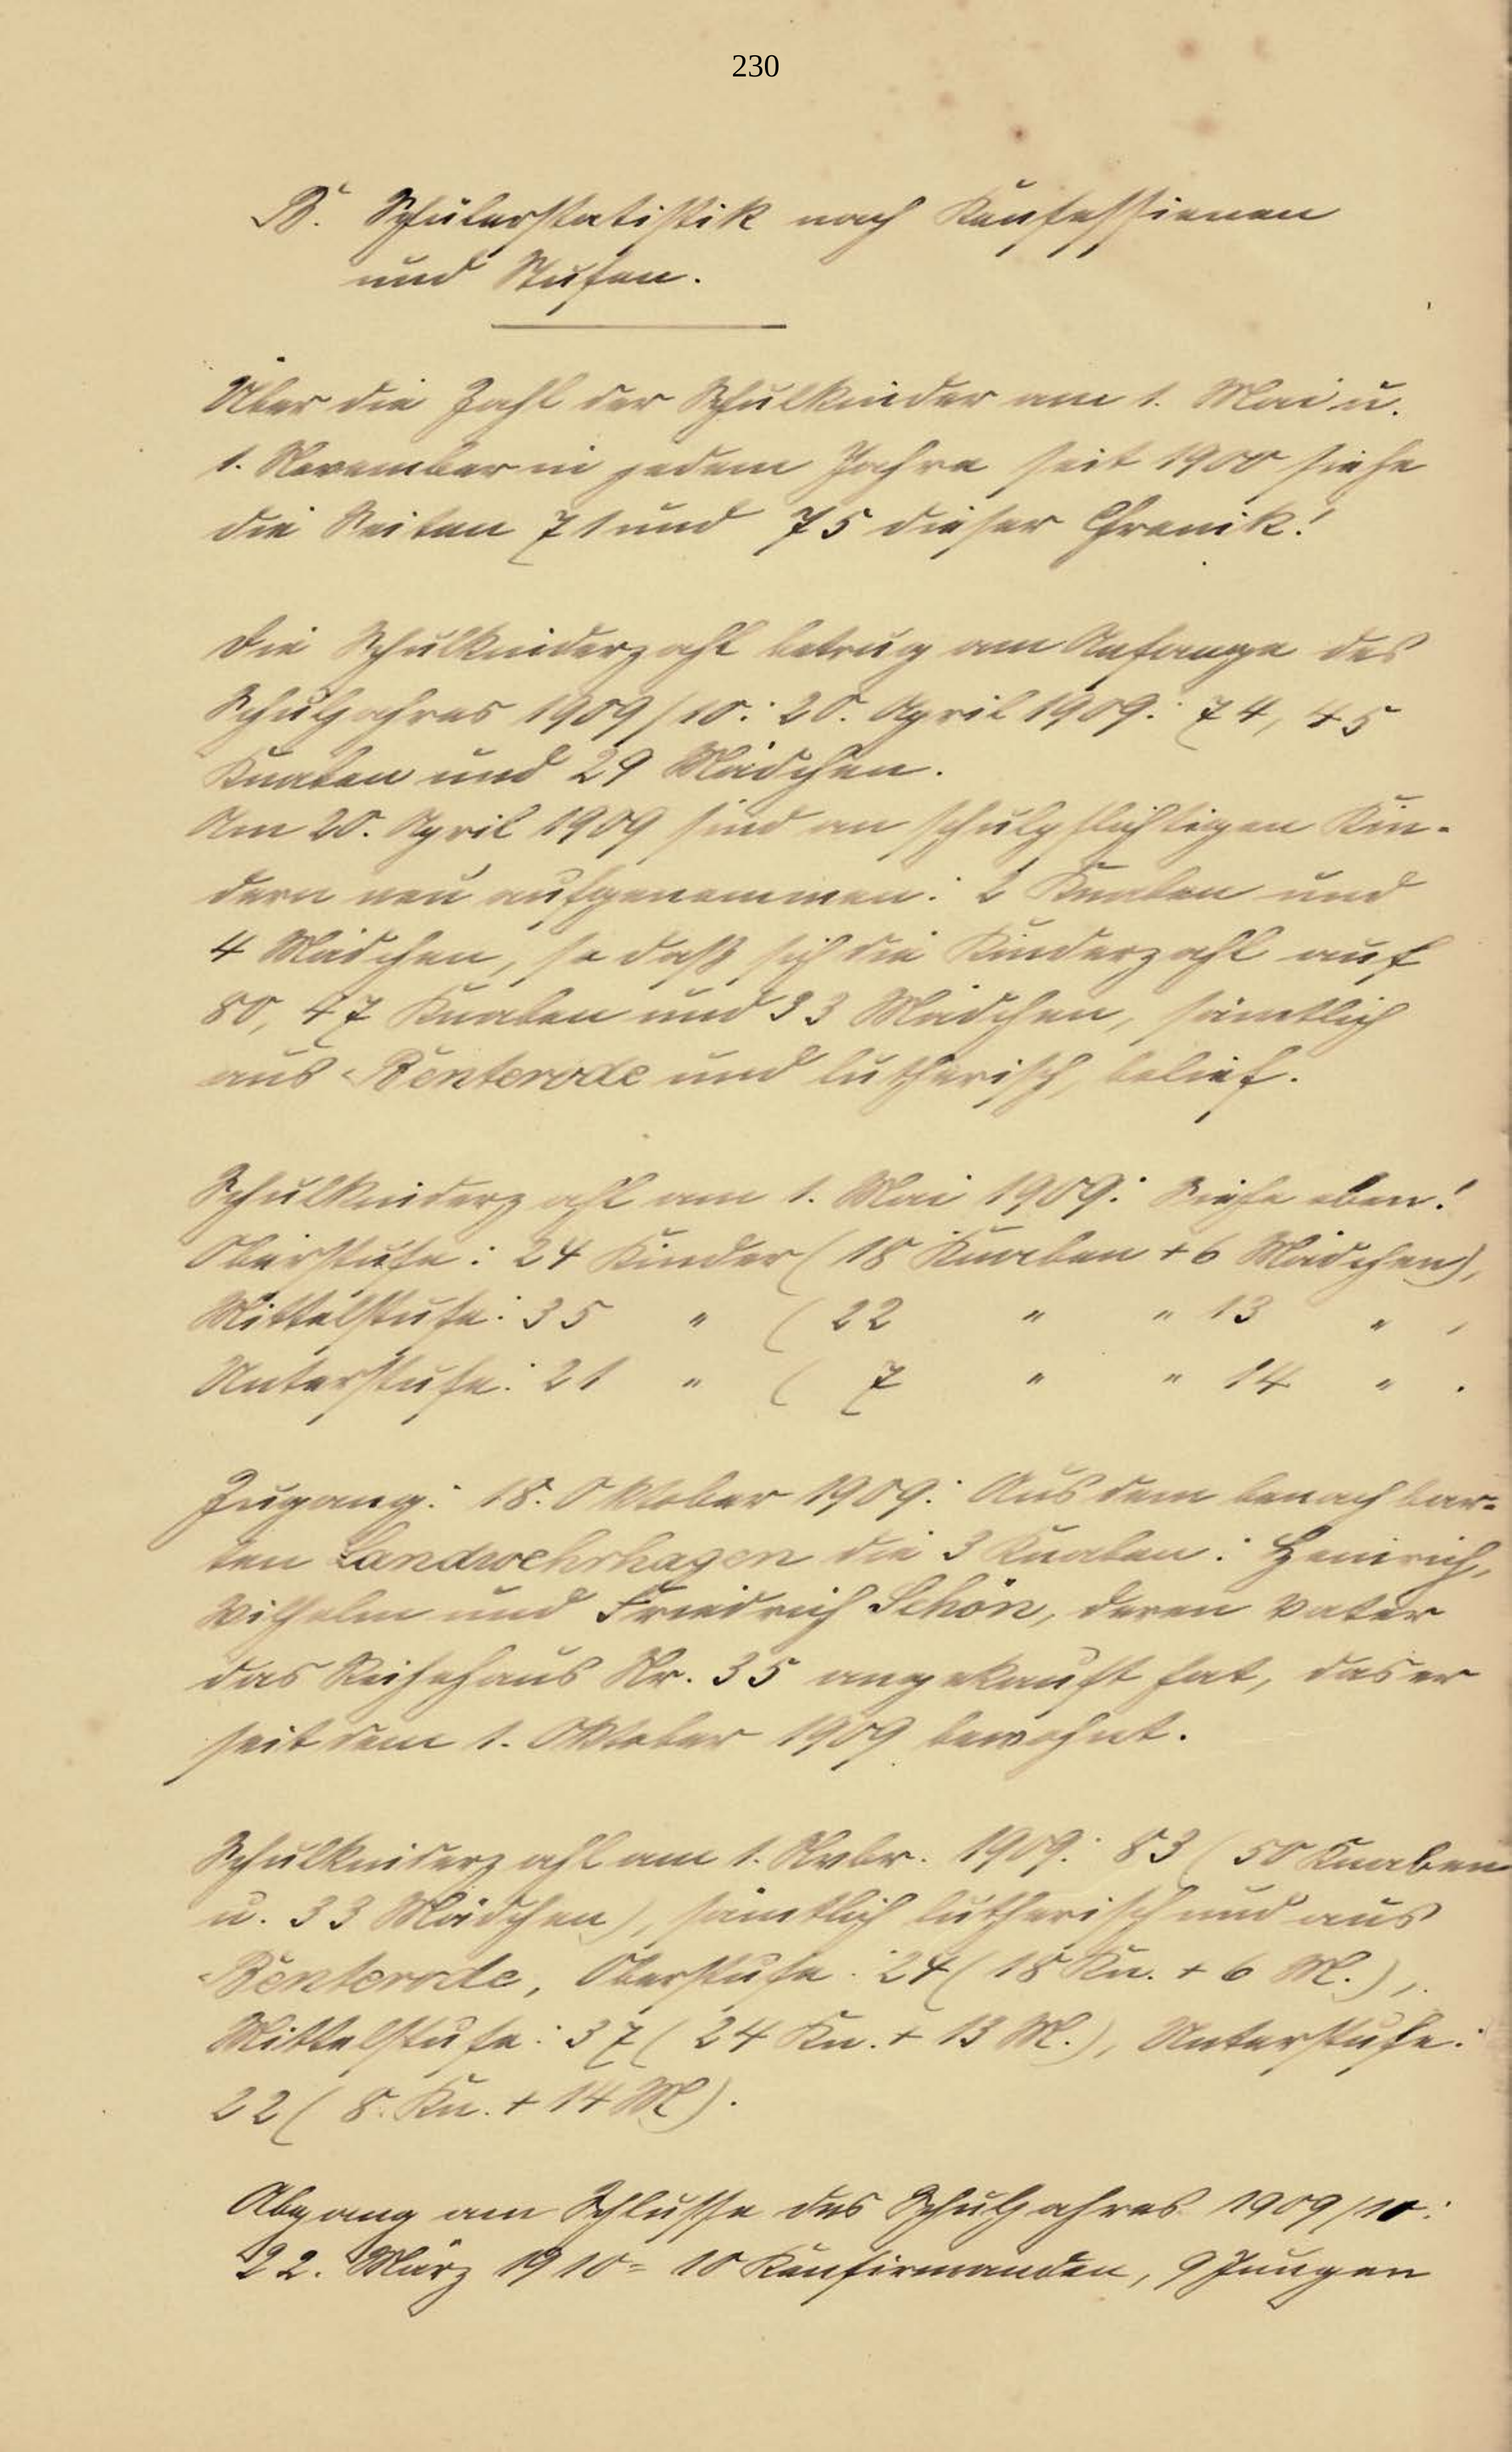 230
B. Schülerstatistik nach Konfessionen
und Stufen.
Über die Zahl der Schulkinder am 1. Mai u.
1. November in jedem Jahre seit 1900 siehe
die Seiten 71 und 75 dieser Chronik!
Die Schulkinderzahl betrug am Anfange des
Schuljahres 1909/10: 20. April 1909: 74, 45
Knaben und 29 Mädchen.
Am 20. April 1909 sind an schulpflichtigen Kin-
dern neu aufgenommen: 2 Knaben und
4 Mädchen, so daß sich die Kinderzahl auf
80, 47 Knaben und 33 Mädchen, sämtlich
aus Benterode und lutherisch, belief.
Schulkinderzahl am 1. Mai 1909: Siehe oben!
Oberstufe: 24 Kinder (18 Knaben + 6 Mädchen),
Mittelstufe: 35 " (22 " " 13 " ,
Unterstufe: 21 " ( 7 " " 14 " .
Zugang: 18. Oktober 1909: Aus dem benachbar-
ten Landwehrhagen die 3 Knaben: Heinrich,
Wilhelm und Friedrich Schön, deren Vater
das Reihehaus Nr. 35 angekauft hat, das er
seit dem 1. Oktober 1909 bewohnt.
Schulkinderzahl am 1. Nvbr. 1909: 83 (50 Knaben
u. 33 Mädchen), sämtlich lutherisch und aus
Benterode, Oberstufe: 24 (18 Kn. + 6 M.),
Mittelstufe: 37 (24 Kn. + 13 M.), Unterstufe:
22 ( 8. Kn. + 14 M).
Abgang am Schlusse des Schuljahres 1909/10:
22. März 1910 = 10 Konfirmanden, 9 Jungen